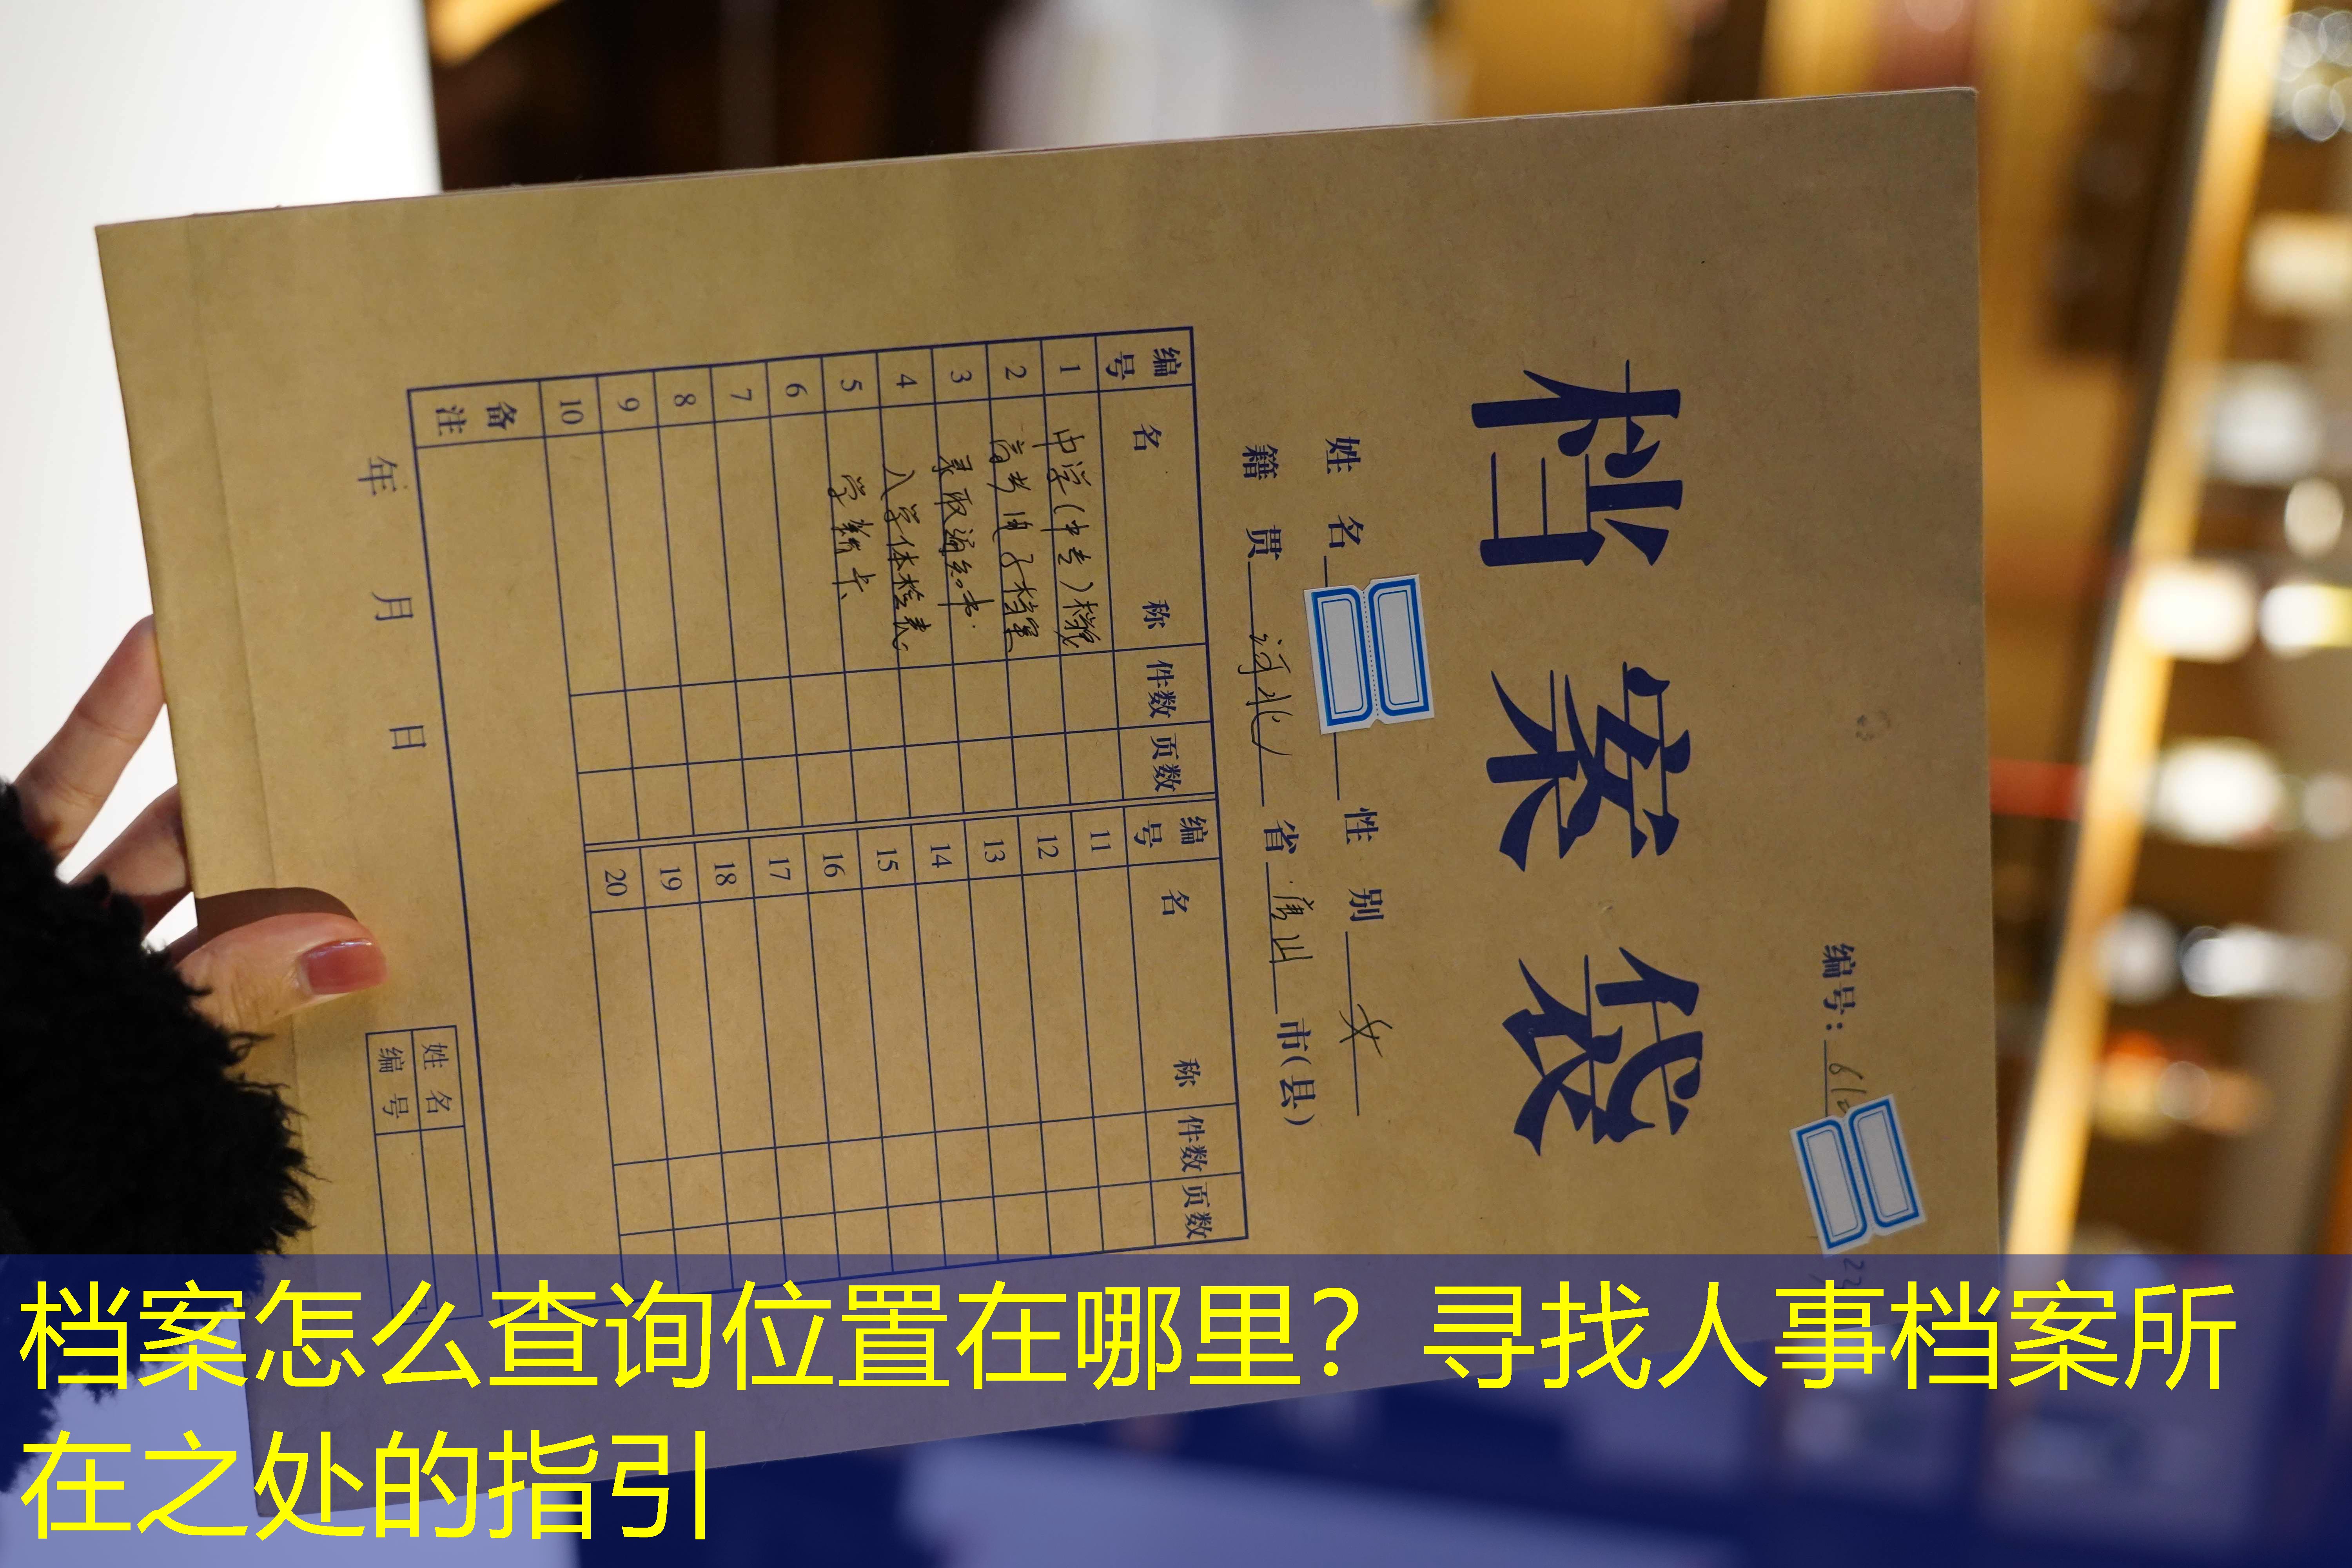 编号：
档案袋
姓名 性别 女
籍贯 河北 省 唐山 市(县)
编号 名称 件数 页数 编号 名称 件数 页数
1 中学(中专)档案 11
2 高考电子档案 12
3 录取通知书 13
4 入学体检表 14
5 学籍卡 15
6 16
7 17
8 18
9 19
10 20
备注
年 月 日
姓名
编号
档案怎么查询位置在哪里？寻找人事档案所
在之处的指引